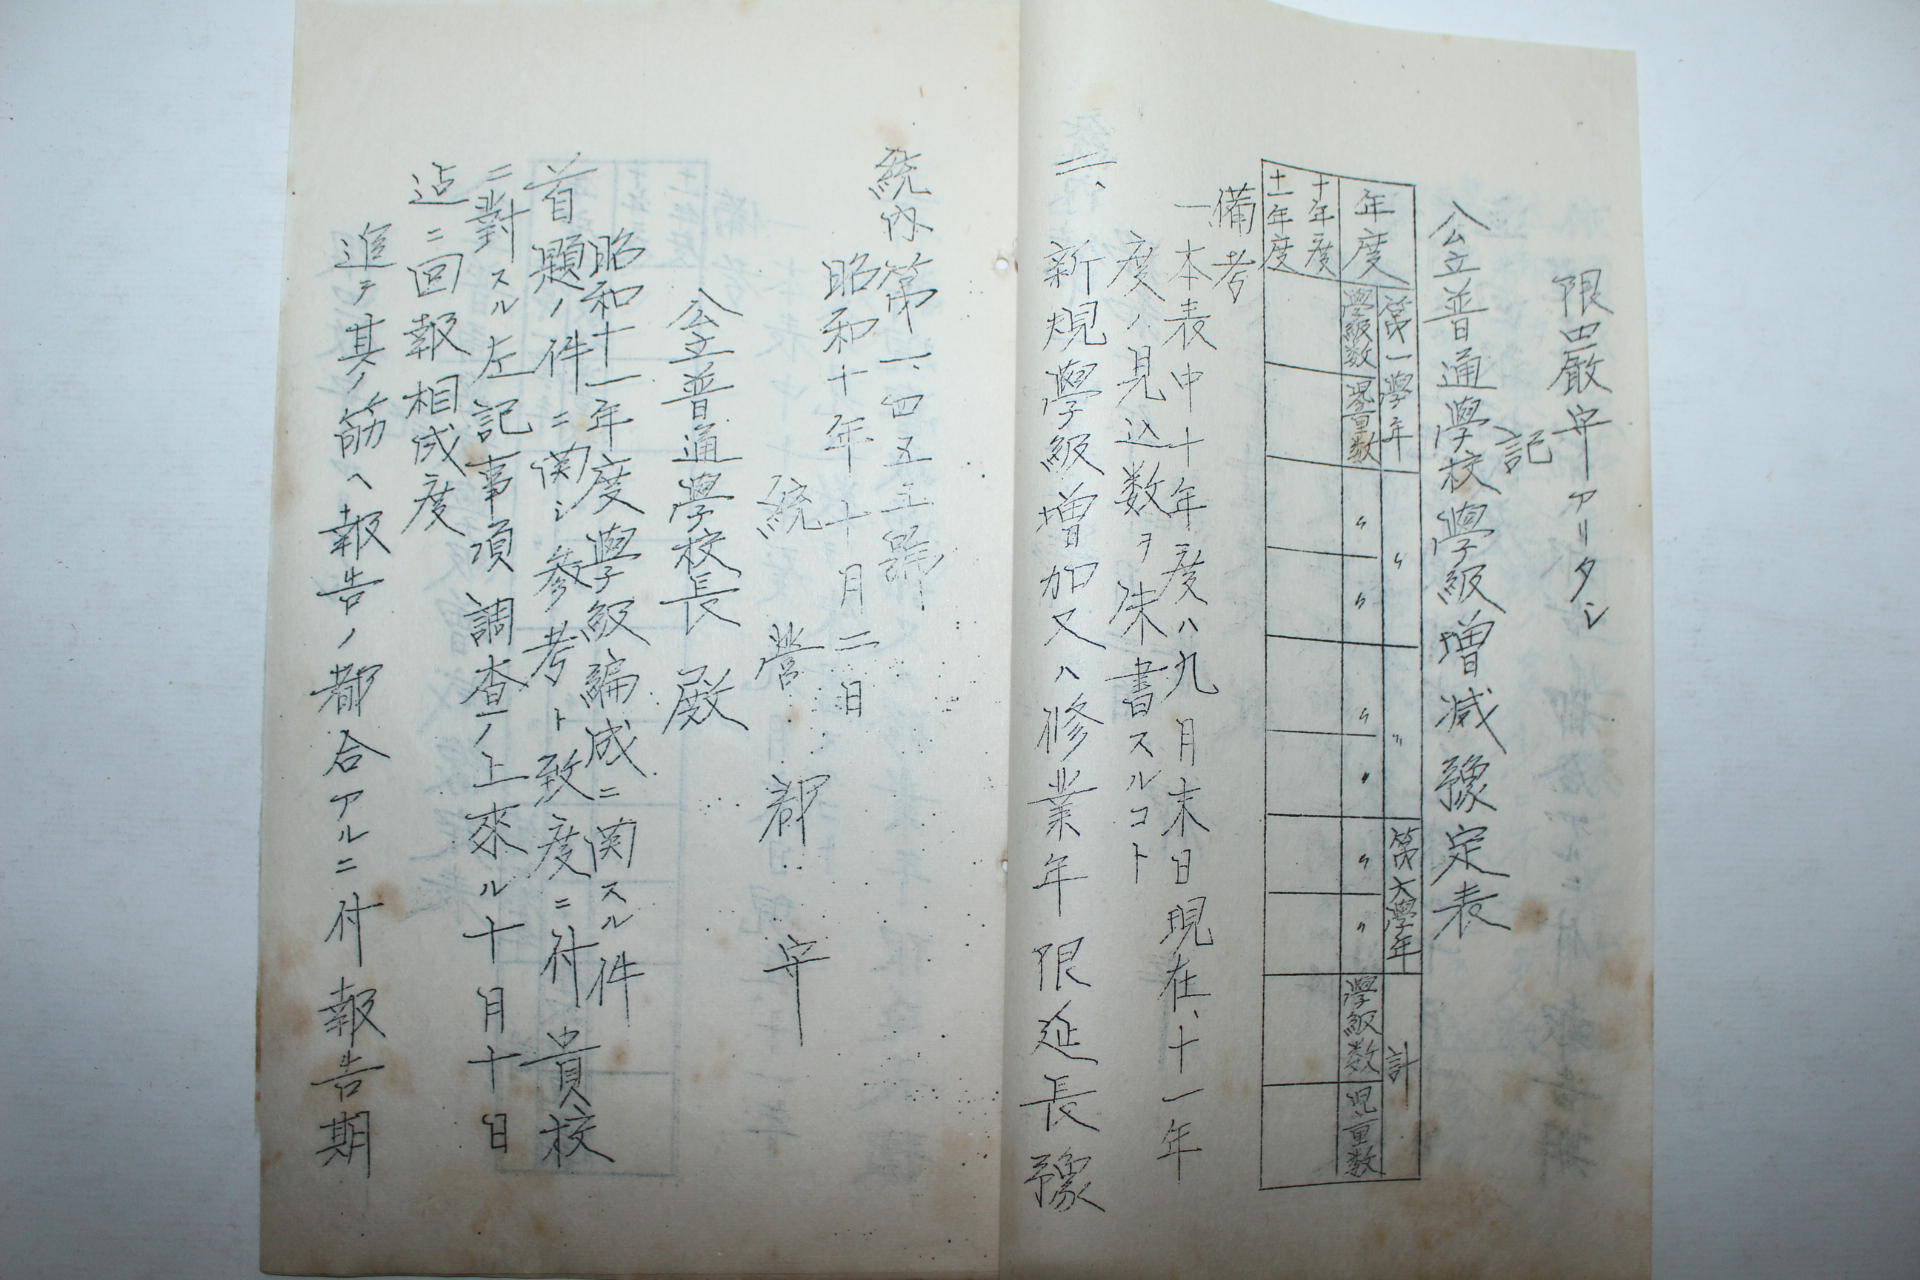 限嚴守アリタシ
記
公立普通學校學級増減豫定表
年度 第一學年 〃 〃 第六學年 計
學級数 児童数 〃 〃 〃 〃 〃 〃 學級数 児童数
十年度
十一年度
備考
一、本表中十年度ハ九月末日現在、十一年
度ハ見込数ヲ朱書スルコト
二、新規學級増加又ハ修業年限延長豫
統内第一、四五五號
昭和十年十月二日
統營郡守
公立普通學校長殿
昭和十一年度學級編成ニ関スル件
首題ノ件ニ関シ参考ト致度ニ付貴校
ニ對スル左記事項調査ノ上來ル十月十日
迠ニ回報相成度
追テ其ノ筋ヘ報告ノ都合アルニ付報告期